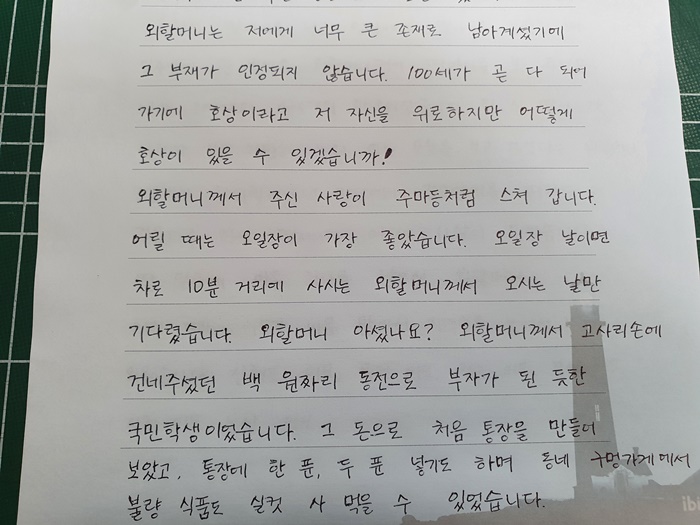 외할머니는 저에게 너무 큰 존재로 남아계셨기에
그 부재가 인정되지 않습니다. 100세가 곧 다 되어
가기에 호상이라고 저 자신을 위로하지만 어떻게
호상이 있을 수 있겠습니까!
외할머니께서 주신 사랑이 주마등처럼 스쳐 갑니다.
어릴 때는 오일장이 가장 좋았습니다. 오일장 날이면
차로 10분 거리에 사시는 외할머니께서 오시는 날만
기다렸습니다. 외할머니 아셨나요? 외할머니께서 고사리손에
건네주셨던 백 원짜리 동전으로 부자가 된 듯한
국민학생이었습니다. 그 돈으로 처음 통장을 만들어
보았고, 통장에 한 푼, 두 푼 넣기도 하며 동네 구멍가게에서
불량 식품도 실컷 사 먹을 수 있었습니다.